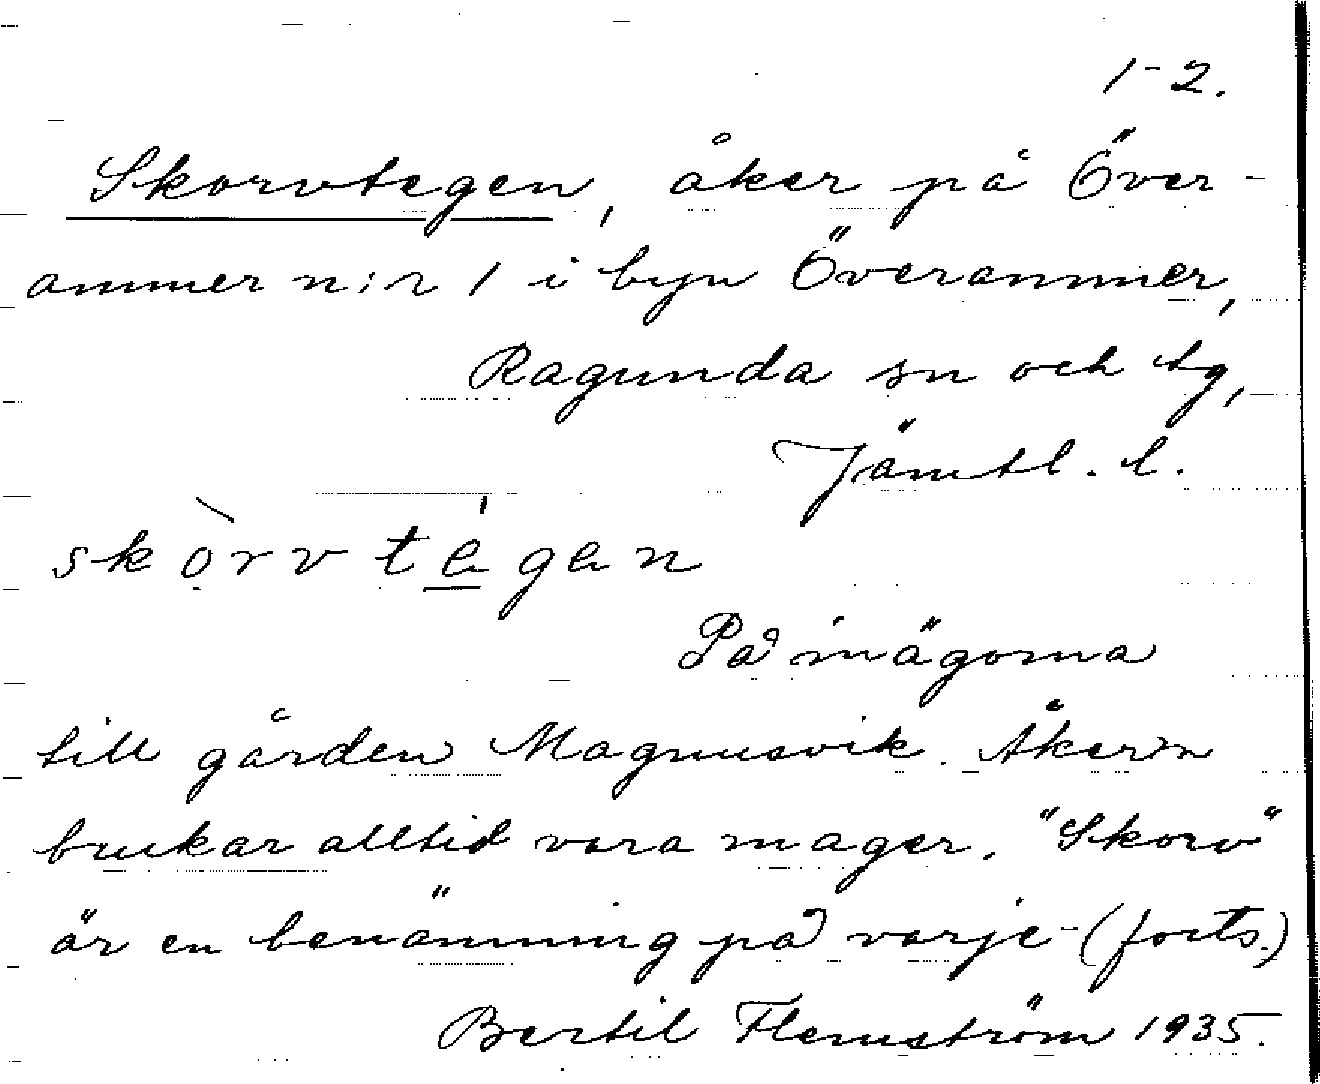 1-2.
Skorvtegen, åker på Över-
ammer n:r 1 i byn Överammer,
Ragunda sn och tg,
Jämtl. l.
skòrvtégen
På inägorna
till gården Magnusvik. Åkern
brukar alltid vara mager. "Skorv"
är en benämning på varje (forts.)
Bertil Flemström 1935.